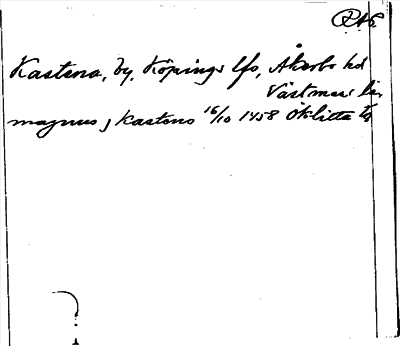 RAÄ
Kastena, by, Köpings lfs, Åkerbo hd
Västman. län
magnus j Kastono 16/10 1458 Öklitta